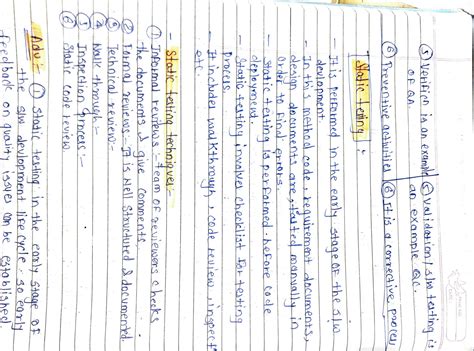 ⑤ Verificn is an example of QA.
⑤ Validation / s/w testing is an example QC.
⑥ Preventive activities
⑥ It is a corrective process
Static testing
- It is performed in the early stage of the s/w
devlopment.
- In this method code, requirement documents,
design documents are, tialted manually in
order to find errors.
- Static testing is performed before code
deployment
- Static testing involves checklist for testing
process.
- It includes walkthrough, code review, inspecn
etc.
- Static testing techniques:-
① Informal reviews :- team of reviewers checks
the documents & give comments.
② Formal reviews :- It is well structured & documented.
③ Technical review :-
④ walk through :-
⑤ Inspection process :-
⑥ Static code review
Adv :- ① Static testing in the early stage of
the s/w devlopment life cycle, so early
feedback on quality issues can be established.